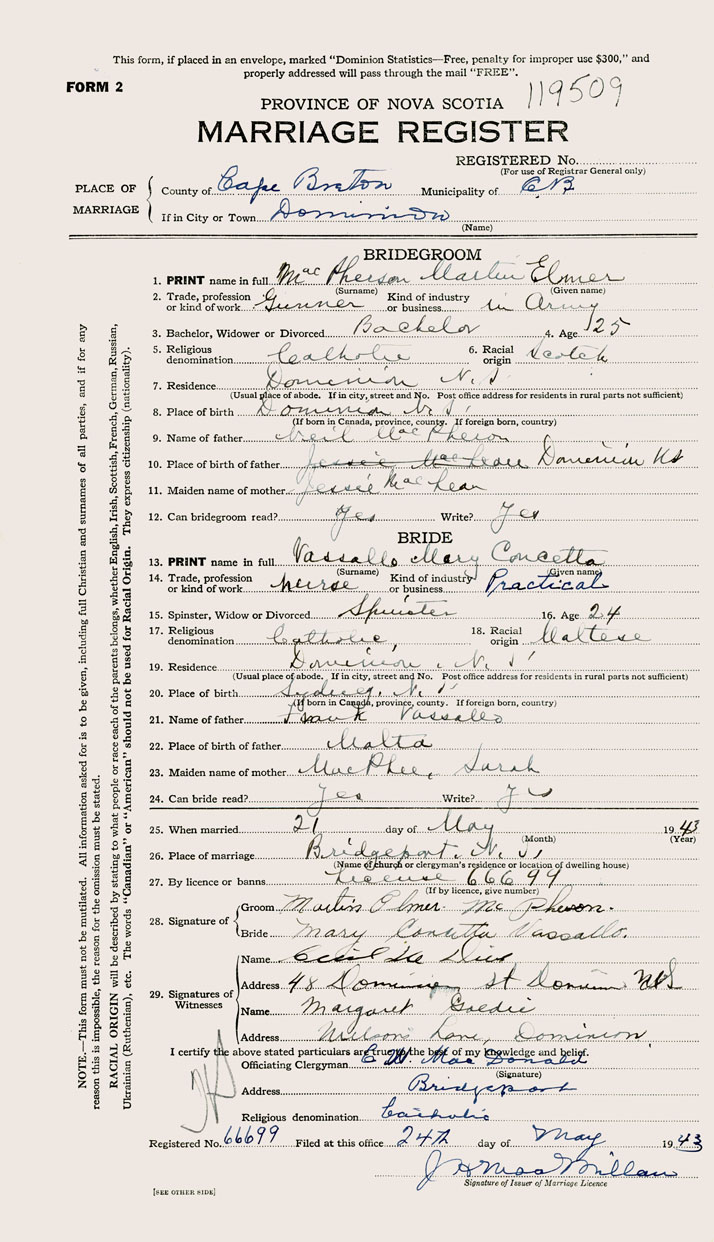 This form, if placed in an envelope, marked "Dominion Statistics—Free, penalty for improper use $300," and
properly addressed will pass through the mail "FREE".
FORM 2
PROVINCE OF NOVA SCOTIA 119509
MARRIAGE REGISTER
REGISTERED No.
(For use of Registrar General only)
PLACE OF MARRIAGE
County of Cape Breton Municipality of C.B.
If in City or Town Dominion
(Name)
BRIDEGROOM
1. PRINT name in full MacPherson Martin Elmer
(Surname) (Given name)
2. Trade, profession or kind of work Gunner Kind of industry or business in Army
3. Bachelor, Widower or Divorced Bachelor 4. Age 25
5. Religious denomination Catholic 6. Racial origin Scotch
7. Residence Dominion N.S.
(Usual place of abode. If in city, street and No. Post office address for residents in rural parts not sufficient)
8. Place of birth Dominion N.S.
(If born in Canada, province, county. If foreign born, country)
9. Name of father Neil MacPherson
10. Place of birth of father Jessie MacLean Dominion NS
11. Maiden name of mother Jessie MacLean
12. Can bridegroom read? Yes Write? Yes
BRIDE
13. PRINT name in full Vassallo Mary Concetta
(Surname) (Given name)
14. Trade, profession or kind of work nurse Kind of industry or business Practical
15. Spinster, Widow or Divorced Spinster 16. Age 24
17. Religious denomination Catholic, 18. Racial origin Maltese
19. Residence Dominion, N.S.
(Usual place of abode. If in city, street and No. Post office address for residents in rural parts not sufficient)
20. Place of birth Sydney, N.S.
(If born in Canada, province, county. If foreign born, country)
21. Name of father Frank Vassallo
22. Place of birth of father Malta
23. Maiden name of mother MacPhee, Sarah
24. Can bride read? Yes Write? Yes
25. When married 21 day of May 1943
(Month) (Year)
26. Place of marriage Bridgeport, N.S.
(Name of church or clergyman's residence or location of dwelling house)
27. By licence or banns License 66699
(If by licence, give number)
28. Signature of
Groom Martin Elmer McPherson.
Bride Mary Concetta Vassallo.
29. Signatures of Witnesses
Name Cecil
Address 48 Dominion St Dominion NS
Name Margaret Goldie
Address Wilson's Lane, Dominion
I certify the above stated particulars are true to the best of my knowledge and belief.
Officiating Clergyman MacDonald
(Signature)
Address Bridgeport
Religious denomination Catholic
Registered No. 66699 Filed at this office 24th day of May 1943
J A MacMillan
Signature of Issuer of Marriage Licence
[SEE OTHER SIDE]
NOTE.—This form must not be mutilated. All information asked for is to be given, including full Christian and surnames of all parties, and if for any
reason this is impossible, the reason for the omission must be stated.
RACIAL ORIGIN will be described by stating to what people or race each of the parents belongs, whether English, Irish, Scottish, French, German, Russian,
Ukrainian (Ruthenian), etc. The words "Canadian" or "American" should not be used for Racial Origin. They express citizenship (nationality).